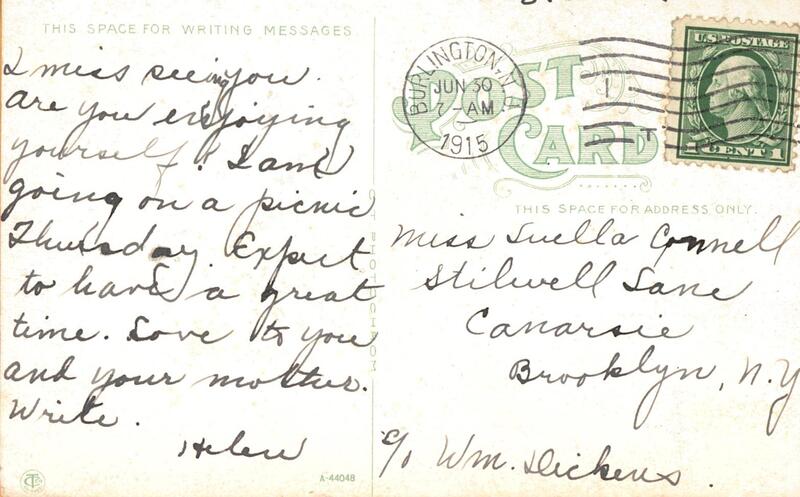 THIS SPACE FOR WRITING MESSAGES
I miss seeing you.
are you enjoying
yourself? I am
going on a picnic
Thursday. Expect
to have a great
time. Love to you
and your mother.
Write.
Helen
A-44048
OCT PHOTOCHROM
BURLINGTON, N.J.
JUN 30
7-AM
1915
1
T
POST
CARD
U.S. POSTAGE
1 CENT 1
THIS SPACE FOR ADDRESS ONLY.
Miss Luella Connell
Stilwell Lane
Canarsie
Brooklyn, N.Y
c/o Wm. Dickens.